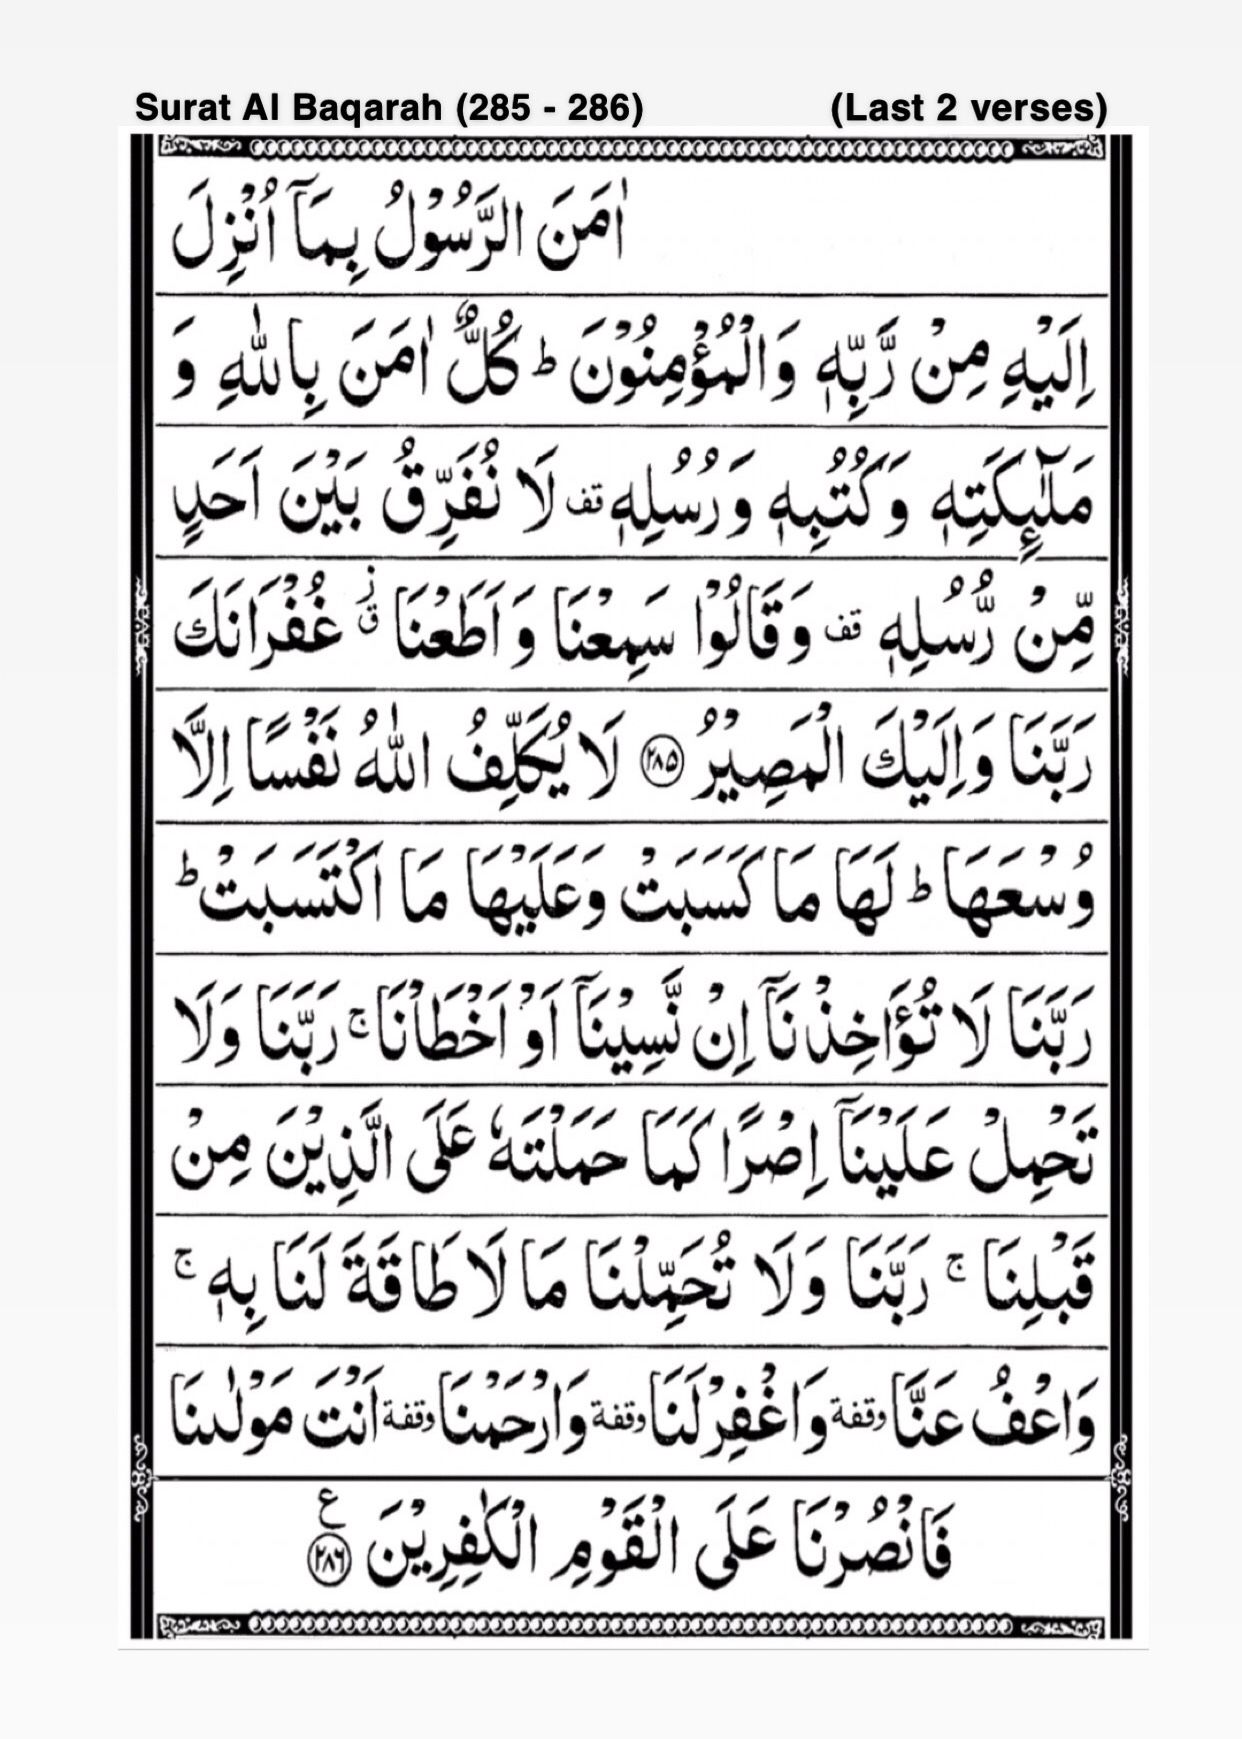 Surat Al Baqarah (285 - 286) (Last 2 verses)
اٰمَنَ الرَّسُوْلُ بِمَاۤ اُنْزِلَ
اِلَيْهِ مِنْ رَّبِّهٖ وَالْمُؤْمِنُوْنَ ؕ كُلٌّ اٰمَنَ بِاللّٰهِ وَ
مَلٰٓئِكَتِهٖ وَكُتُبِهٖ وَرُسُلِهٖ قف لَا نُفَرِّقُ بَيْنَ اَحَدٍ
مِّنْ رُّسُلِهٖ قف وَقَالُوْا سَمِعْنَا وَاَطَعْنَا ق ز غُفْرَانَكَ
رَبَّنَا وَاِلَيْكَ الْمَصِيْرُ ﴿۲۸۵﴾ لَا يُكَلِّفُ اللّٰهُ نَفْسًا اِلَّا
وُسْعَهَا ؕ لَهَا مَا كَسَبَتْ وَعَلَيْهَا مَا اكْتَسَبَتْ ؕ
رَبَّنَا لَا تُؤَاخِذْنَاۤ اِنْ نَّسِيْنَاۤ اَوْ اَخْطَاْنَا ۚ رَبَّنَا وَلَا
تَحْمِلْ عَلَيْنَاۤ اِصْرًا كَمَا حَمَلْتَهٗ عَلَى الَّذِيْنَ مِنْ
قَبْلِنَا ۚ رَبَّنَا وَلَا تُحَمِّلْنَا مَا لَا طَاقَةَ لَنَا بِهٖ ۚ
وَاعْفُ عَنَّا وقفة وَاغْفِرْ لَنَا وقفة وَارْحَمْنَا وقفة اَنْتَ مَوْلٰىنَا
فَانْصُرْنَا عَلَى الْقَوْمِ الْكٰفِرِيْنَ ﴿۲۸۶﴾ ع